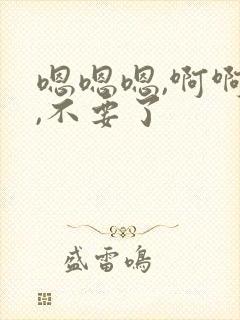 嗯嗯嗯,啊啊
,不要了
盛雷鸣